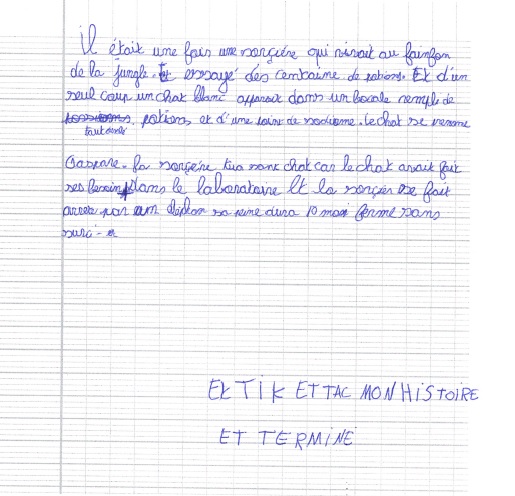 il était une fois une sorçière qui vivait au fainfon
de la jungle. Et essayé des centaine de potions. Et d'un
seul coup un chat blanc apparait dans un bocale rempli de
potions et d'une soint de sodiome. Le chat se nomme
tout dune
Gaspare. la sorçeire tua sont chat car le chat avait fait
ses besoin dans le laboratoire Et la sorçier se fait
arrete par um déplon sa peine dura 10 moi ferme sans
surci-e
Et TIK ET TAC MON HiSTOiRE
ET TERMiNE